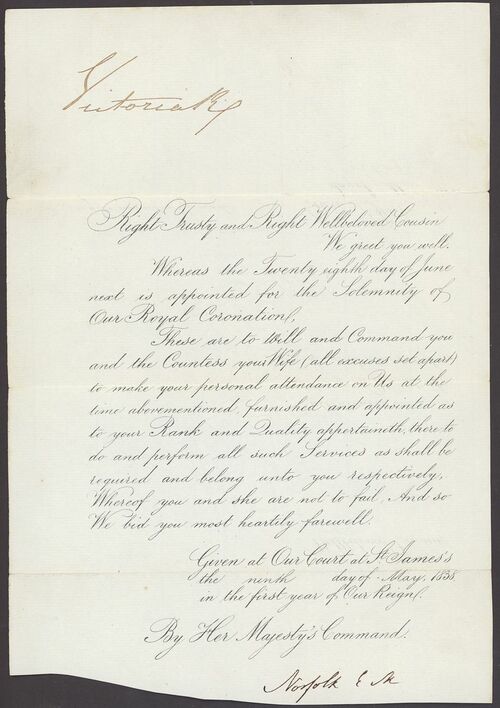 Victoria R
Right Trusty and Right Wellbeloved Cousin
We greet you well.
Whereas the Twenty eighth day of June
next is appointed for the Solemnity of
Our Royal Coronation.
These are to Will and Command you
and the Countess your Wife (all excuses set apart)
to make your personal attendance on Us at the
time abovementioned, furnished and appointed as
to your Rank and Quality appertaineth, there to
do and perform all such Services as shall be
required and belong unto you respectively,
Whereof you and she are not to fail, And so
We bid you most heartily farewell.
Given at Our Court at St. James's
the ninth day of May, 1838
in the first year of Our Reign.
By Her Majesty's Command.
Norfolk E M